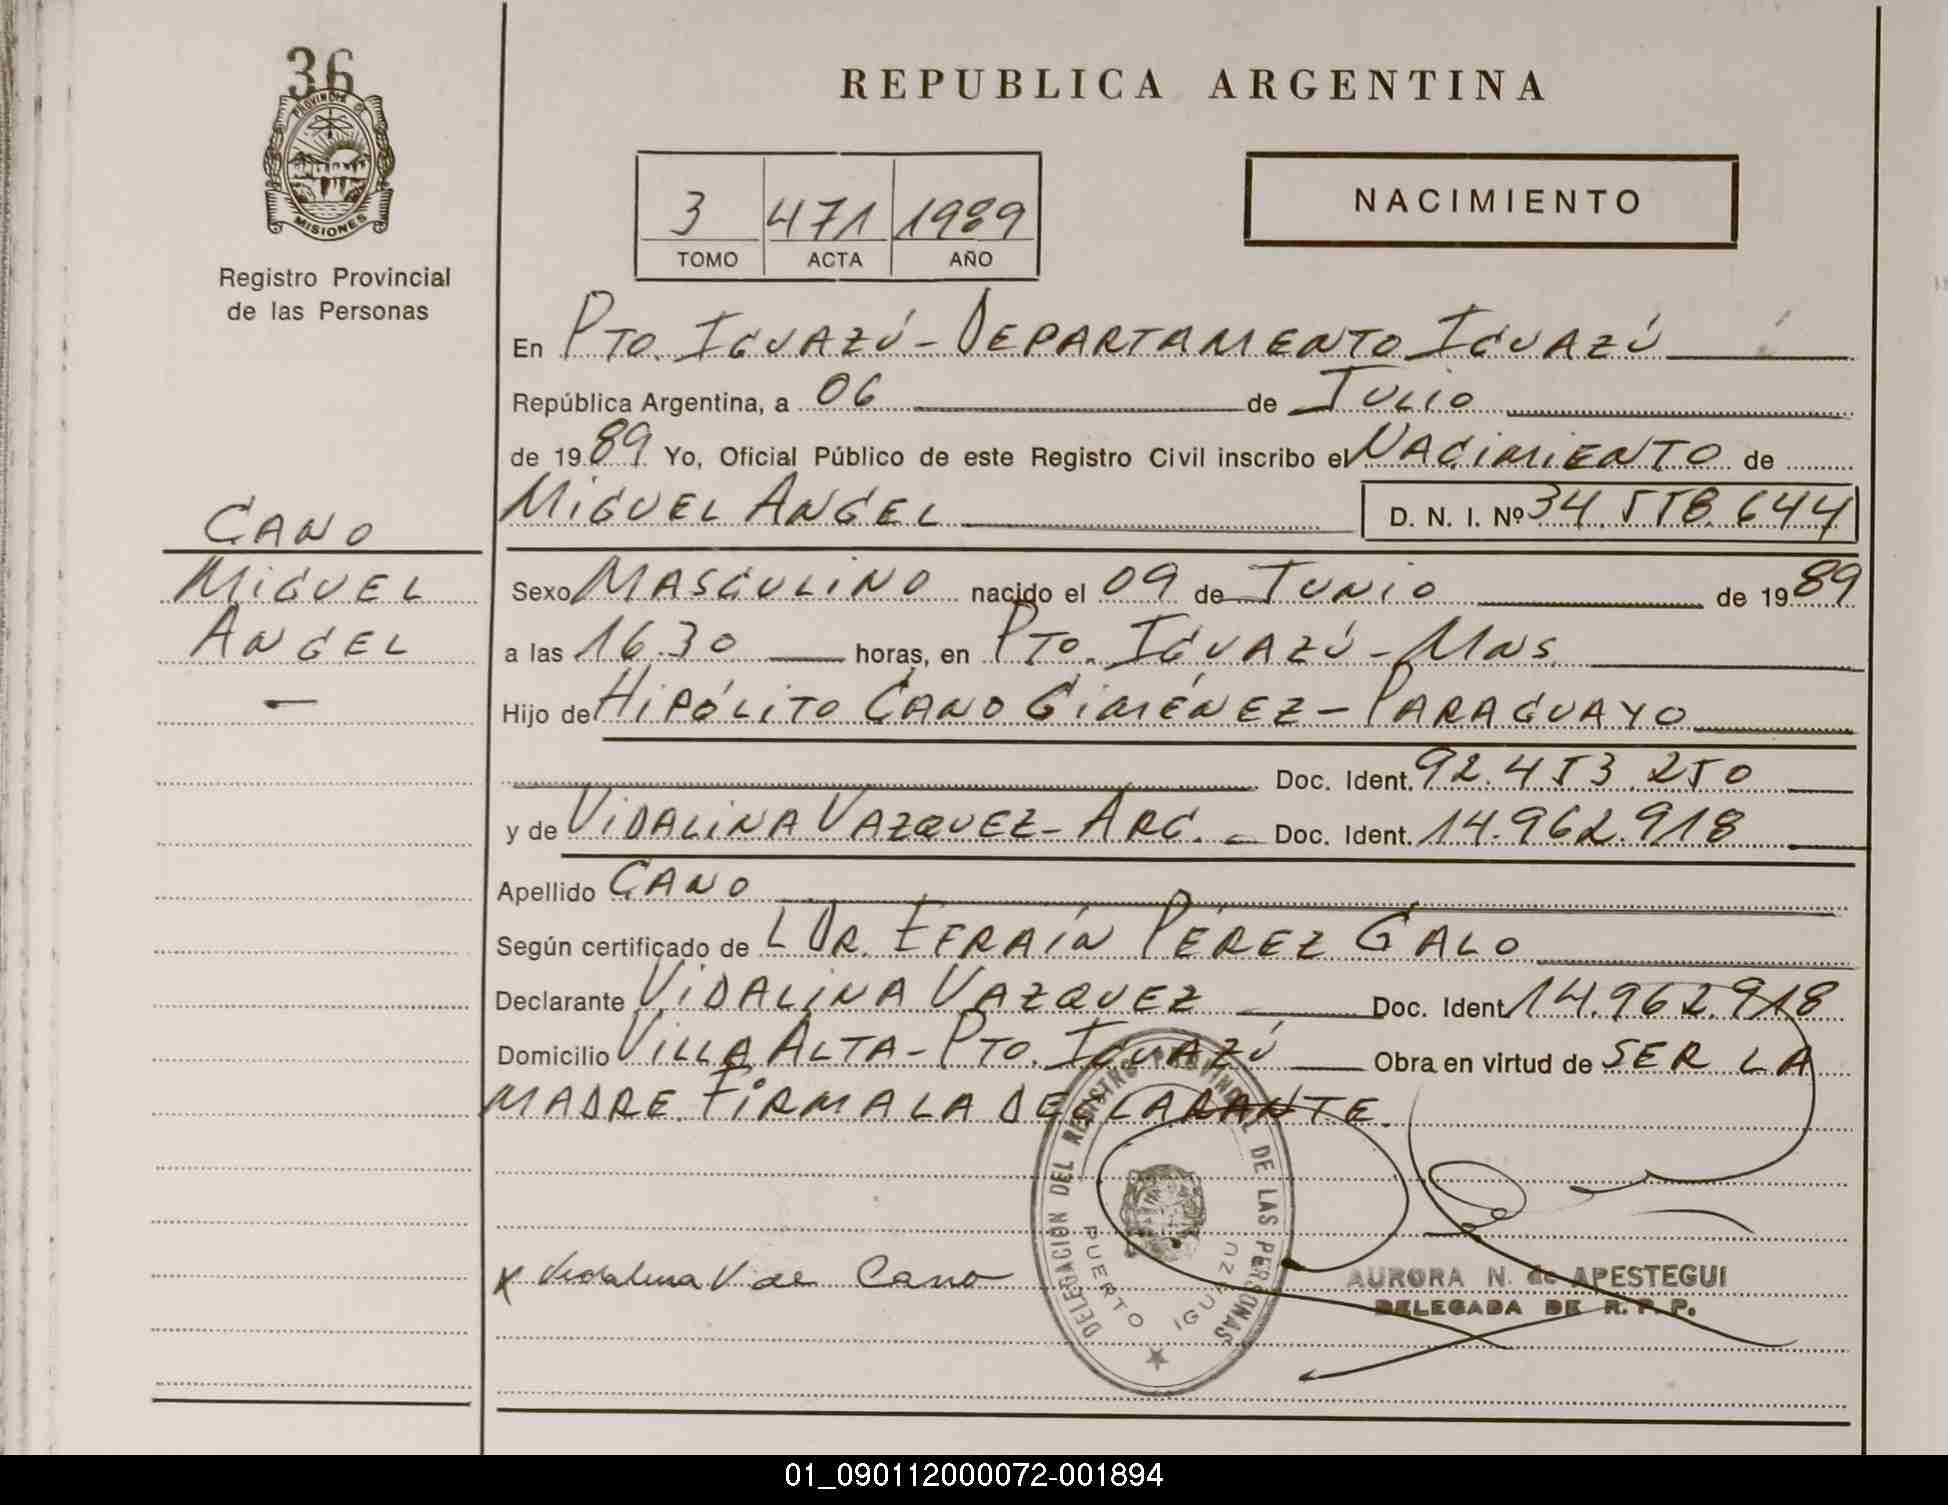 36
PROVINCIA DE
MISIONES
Registro Provincial
de las Personas
CANO
MIGUEL
ANGEL
—
REPUBLICA ARGENTINA
3 471 1989
TOMO ACTA AÑO
NACIMIENTO
En PTO. IGUAZÚ - DEPARTAMENTO IGUAZÚ
República Argentina, a 06 de JULIO
de 1989 Yo, Oficial Público de este Registro Civil inscribo el NACIMIENTO de
MIGUEL ANGEL D. N. I. Nº 34.558.644
Sexo MASCULINO nacido el 09 de JUNIO de 1989
a las 16.30 horas, en PTO. IGUAZÚ - MNS.
Hijo de HIPÓLITO CANO GIMÉNEZ - PARAGUAYO
Doc. Ident. 92.453.250
y de VIDALINA VAZQUEZ - ARG. - Doc. Ident. 14.962.918
Apellido CANO
Según certificado de L DR. EFRAÍN PÉREZ GALO
Declarante VIDALINA VAZQUEZ Doc. Ident 14.962.918
Domicilio VILLA ALTA - PTO. IGUAZÚ Obra en virtud de SER LA
MADRE. FIRMA LA DECLARANTE.
DELEGACIÓN DEL REGISTRO PROVINCIAL DE LAS PERSONAS
PUERTO IGUAZU
X Vidalina V de Cano
AURORA N. de APESTEGUI
DELEGADA DE R. P. P.
01_090112000072-001894